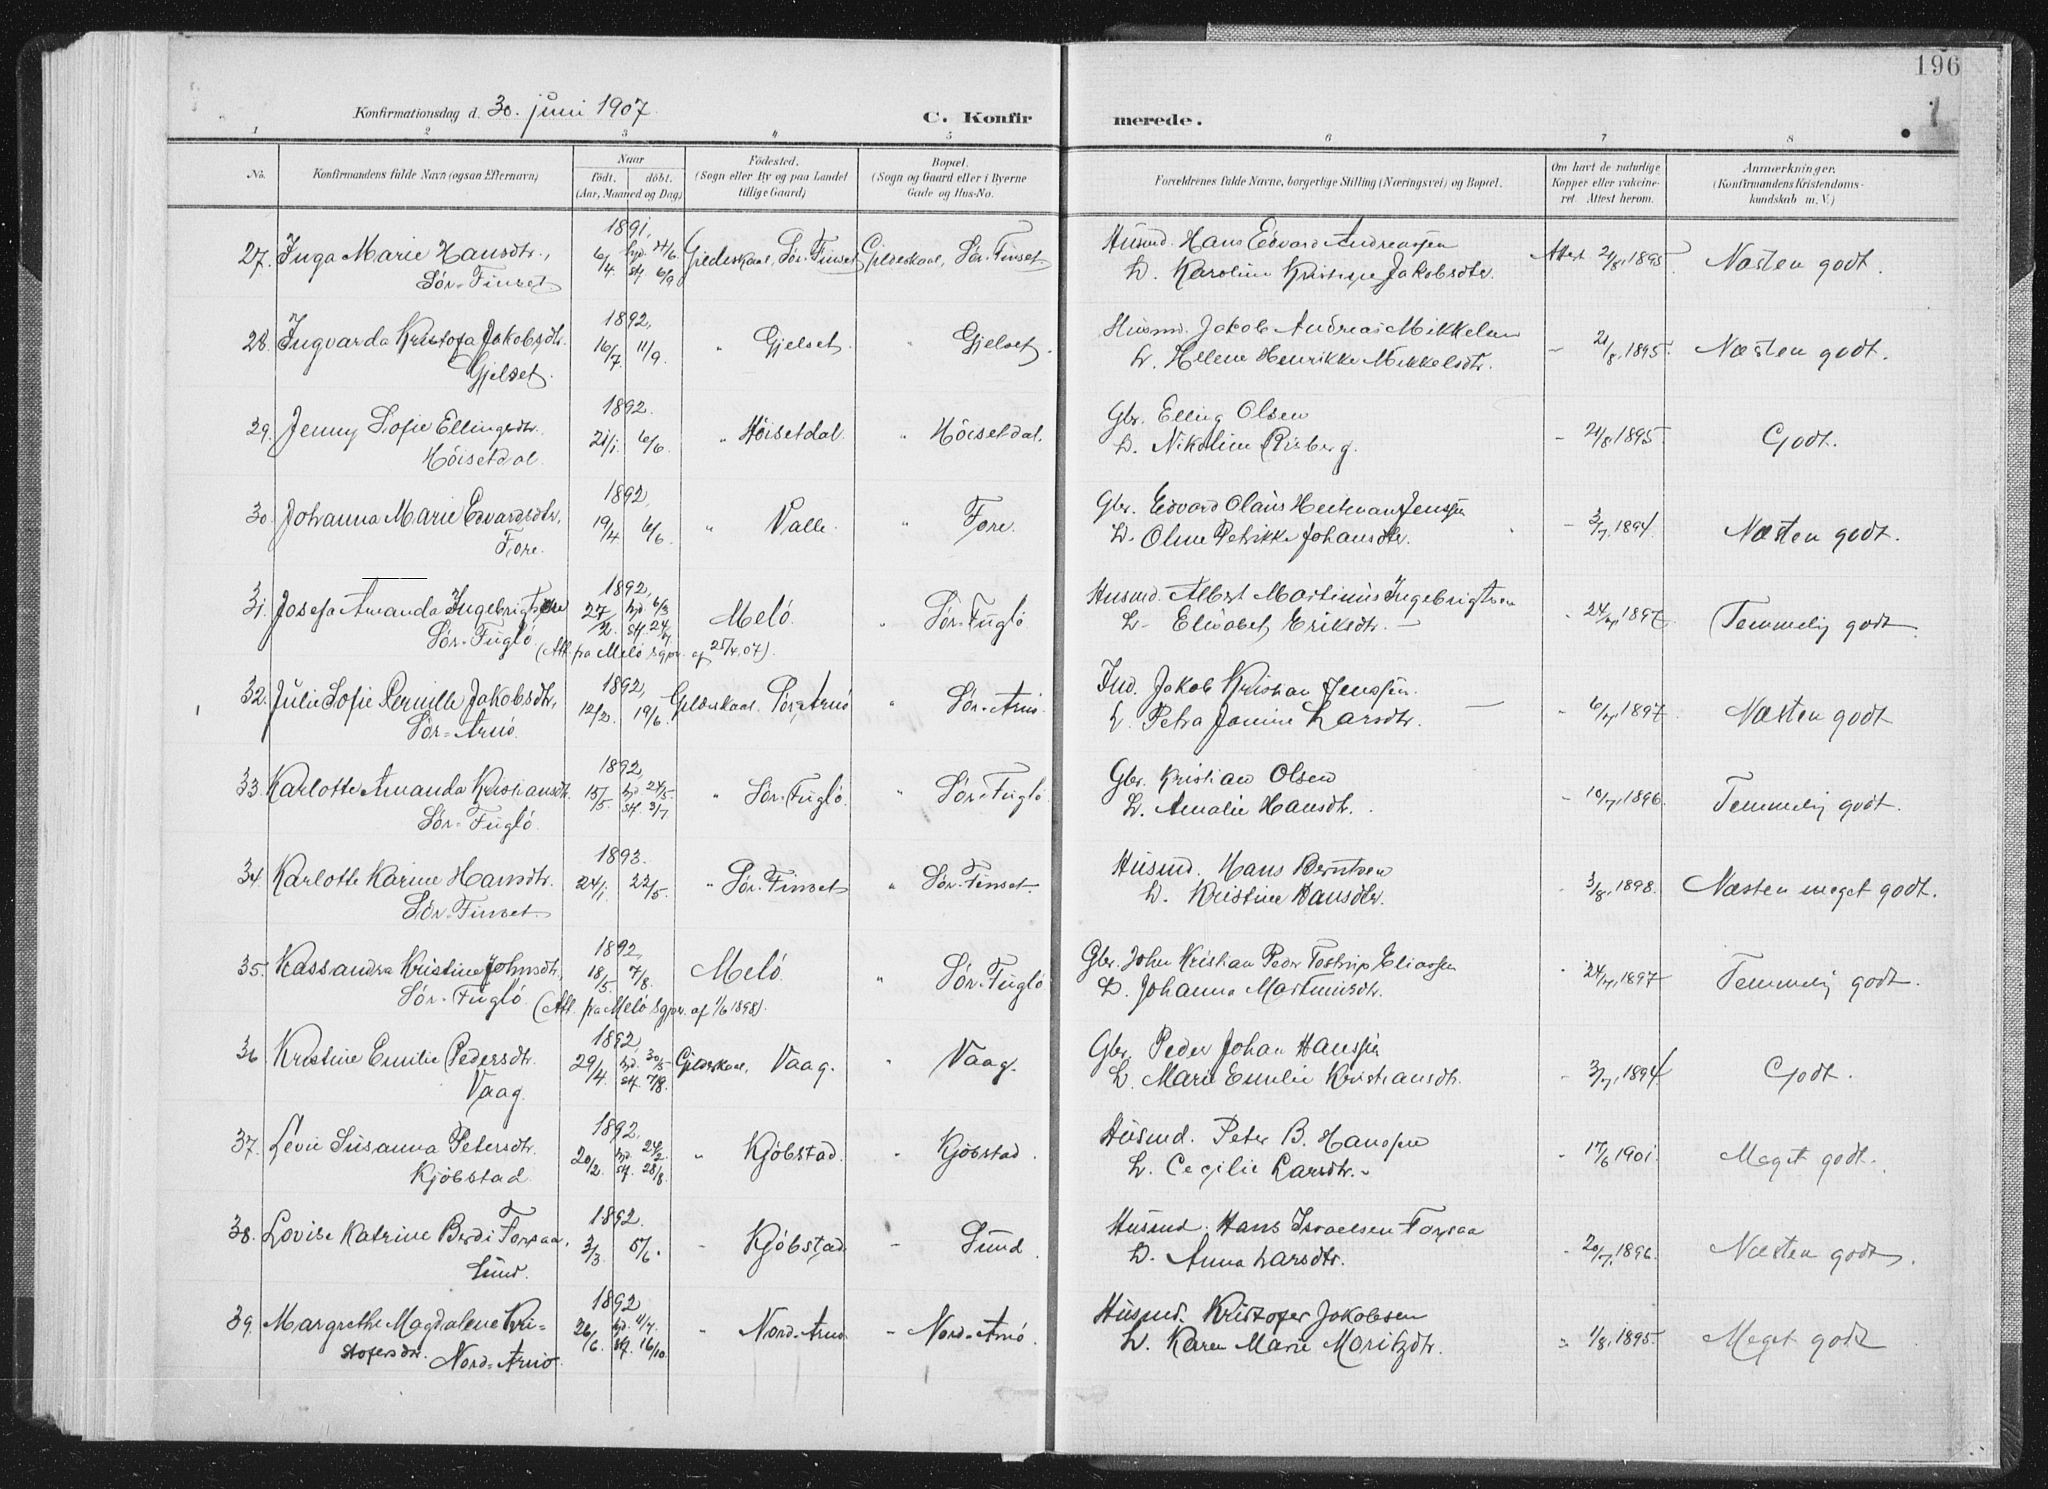 196
Konfirmationsdag d. 30. juni 1907.
C. Konfirmerede.
1 2 3 4 5 6 7 8
No.
Konfirmandens fulde Navn (ogsaa Efternavn)
Naar
født. døbt.
(Aar, Maaned og Dag)
Fødested.
(Sogn eller By og paa Landet
tillige Gaard)
Bopæl.
(Sogn og Gaard eller i Byerne
Gade og Hus-No.
Forældrenes fulde Navne, borgerlige Stilling (Næringsvei) og Bopæl.
Om havt de naturlige
Kopper eller vakcine-
ret. Attest herom.
Anmærkninger.
(Konfirmandens Kristendoms-
kundskab m. V.)
1891,
27. Inga Marie Hansdtr., 6/4. hjd. 24/6. Gjildeskaal, Sör-Finset Gjildeskaal, Sör-Finset Husmd. Hans Edvard Andreassen Attest 21/8, 1895. Næsten godt.
Sör-Finset st. 6/9. H. Karoline Jakobsdtr.
1892,
28. Ingvarda Kristofa Jakobsdtr. 16/7. 11/9. " Gjelset. " Gjelset. Husmd. Jakob Andreas Mikkelsen - 21/8, 1895. Næsten godt.
Gjelset. H. Helene Henrikke Mikkelsdtr.
1892.
29. Jenny Sofie Ellingsdtr. 21/1. 6/6. " Höisetdal. " Höisetdal. Gbr. Elling Olsen - 21/8 1895. Godt.
Höisetdal. H. Nikoline Risberg.
1892,
30. Johanna Marie Edvardsdtr, 19/4 6/6. " Valle. " Fore. Gbr. Edvard Olaus Hartman Jenssen - 3/7, 1894. Næsten godt.
Fore. H. Oline Petrikke Johansdtr.
1892,
31. Josefa Amanda Ingebrigtsen 27/2. hjd. 6/3 Melö. " Sör-Fuglö Husmd. Albert Martinus Ingebrigtsen - 24/7, 1897. Temmelig godt.
Sör-Fuglö (Att. fra Melö Sgpr. af 25/4, 07). H. Elisabet Eriksdtr. -
1892,
32. Julie Sofie Pernille Jakobsdtr, 12/2. 19/6. Gjildeskaal. Sör-Arnö " Sör-Arnö. Ind. Jakob Kristian Jenssen. - 6/7, 1897. Næsten godt
Sör-Arnö. H. Petra Janine Larsdtr.
1892,
33. Karlotte Amanda Kristiansdtr. 15/5. hjd. 24/5. " Sör-Fuglö. " Sör-Fuglö. Gbr. Kristian Olsen - 10/7, 1896. Temmelig godt.
Sör-Fuglö. st. 3/7. H. Amalie Hansdtr.
1893.
34. Karlotte Karine Hansdtr. 24/1. 22/5. " Sör-Finset " Sör-Finset. Husmd. Hans Berntsen - 3/8, 1898. Næsten meget godt.
Sör-Finset. H. Kristine Hansdtr.
1892,
35. Kassandra Kristine Johnsdtr. 18/5. 7/8. Melö. " Sör-Fuglö Gbr. John Kristian Peder Tostrup Eliassen - 24/7, 1897 Temmelig godt.
Sör-Fuglö. (Att. fra Melö Sgpr. af 1/6 1898). H. Johanna Martinusdtr.
1892,
36 Kristine Emilie Pedersdtr. 29/4. hjd. 30/5 Gjildeskaal, Vaag. " Vaag. Gbr. Peder Johan Hanssen - 3/7, 1894. Godt.
Vaag. st. 7/8. H. Marie Emilie Kristiansdtr.
1892,
37. Levie Susanna Petersdtr. 20/2. hjd. 24/2. " Kjöbstad. " Kjöbstad. Husmd. Peter B. Hanssen - 17/6 1901. Meget godt.
Kjöbstad. st. 28/8. H. Cecilie Larsdtr. -
1892.
38. Lovise Katrine Berdi Forsaa. 3/3. 5/6. - Kjöbstad. - Sund. Husmd. Hans Israelsen Forsaa - 20/7, 1896. Næsten godt.
Sund. H. Anna Larsdtr.
1892
39. Margrethe Magdalene Kri= 26/6. hjd. 11/7. " Nord-Arnö. - Nord-Arnö. Husmd. Kristofer Jakobsen - 1/8, 1895. Meget godt
stofersdtr. Nord-Arnö. st. 16/10. H. Karen Marie Moritzdtr.